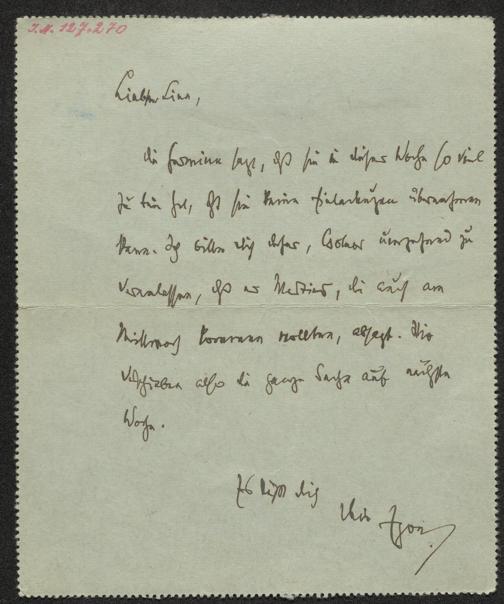 I.N. 127.270
Lieber Linn,
die Hermine sagt, daß sie in dieser Woche so viel
zu tun hat, daß sie keine Einladungen übernehmen
kann. Ich bitte dich daher, umgehend zu
veranlassen, daß er, die auch am
Mittwoch kommen wollten, absagt. Wir
verschieben also die ganze Sache auf nächste
Woche.
Es küßt dich
Dein Egon